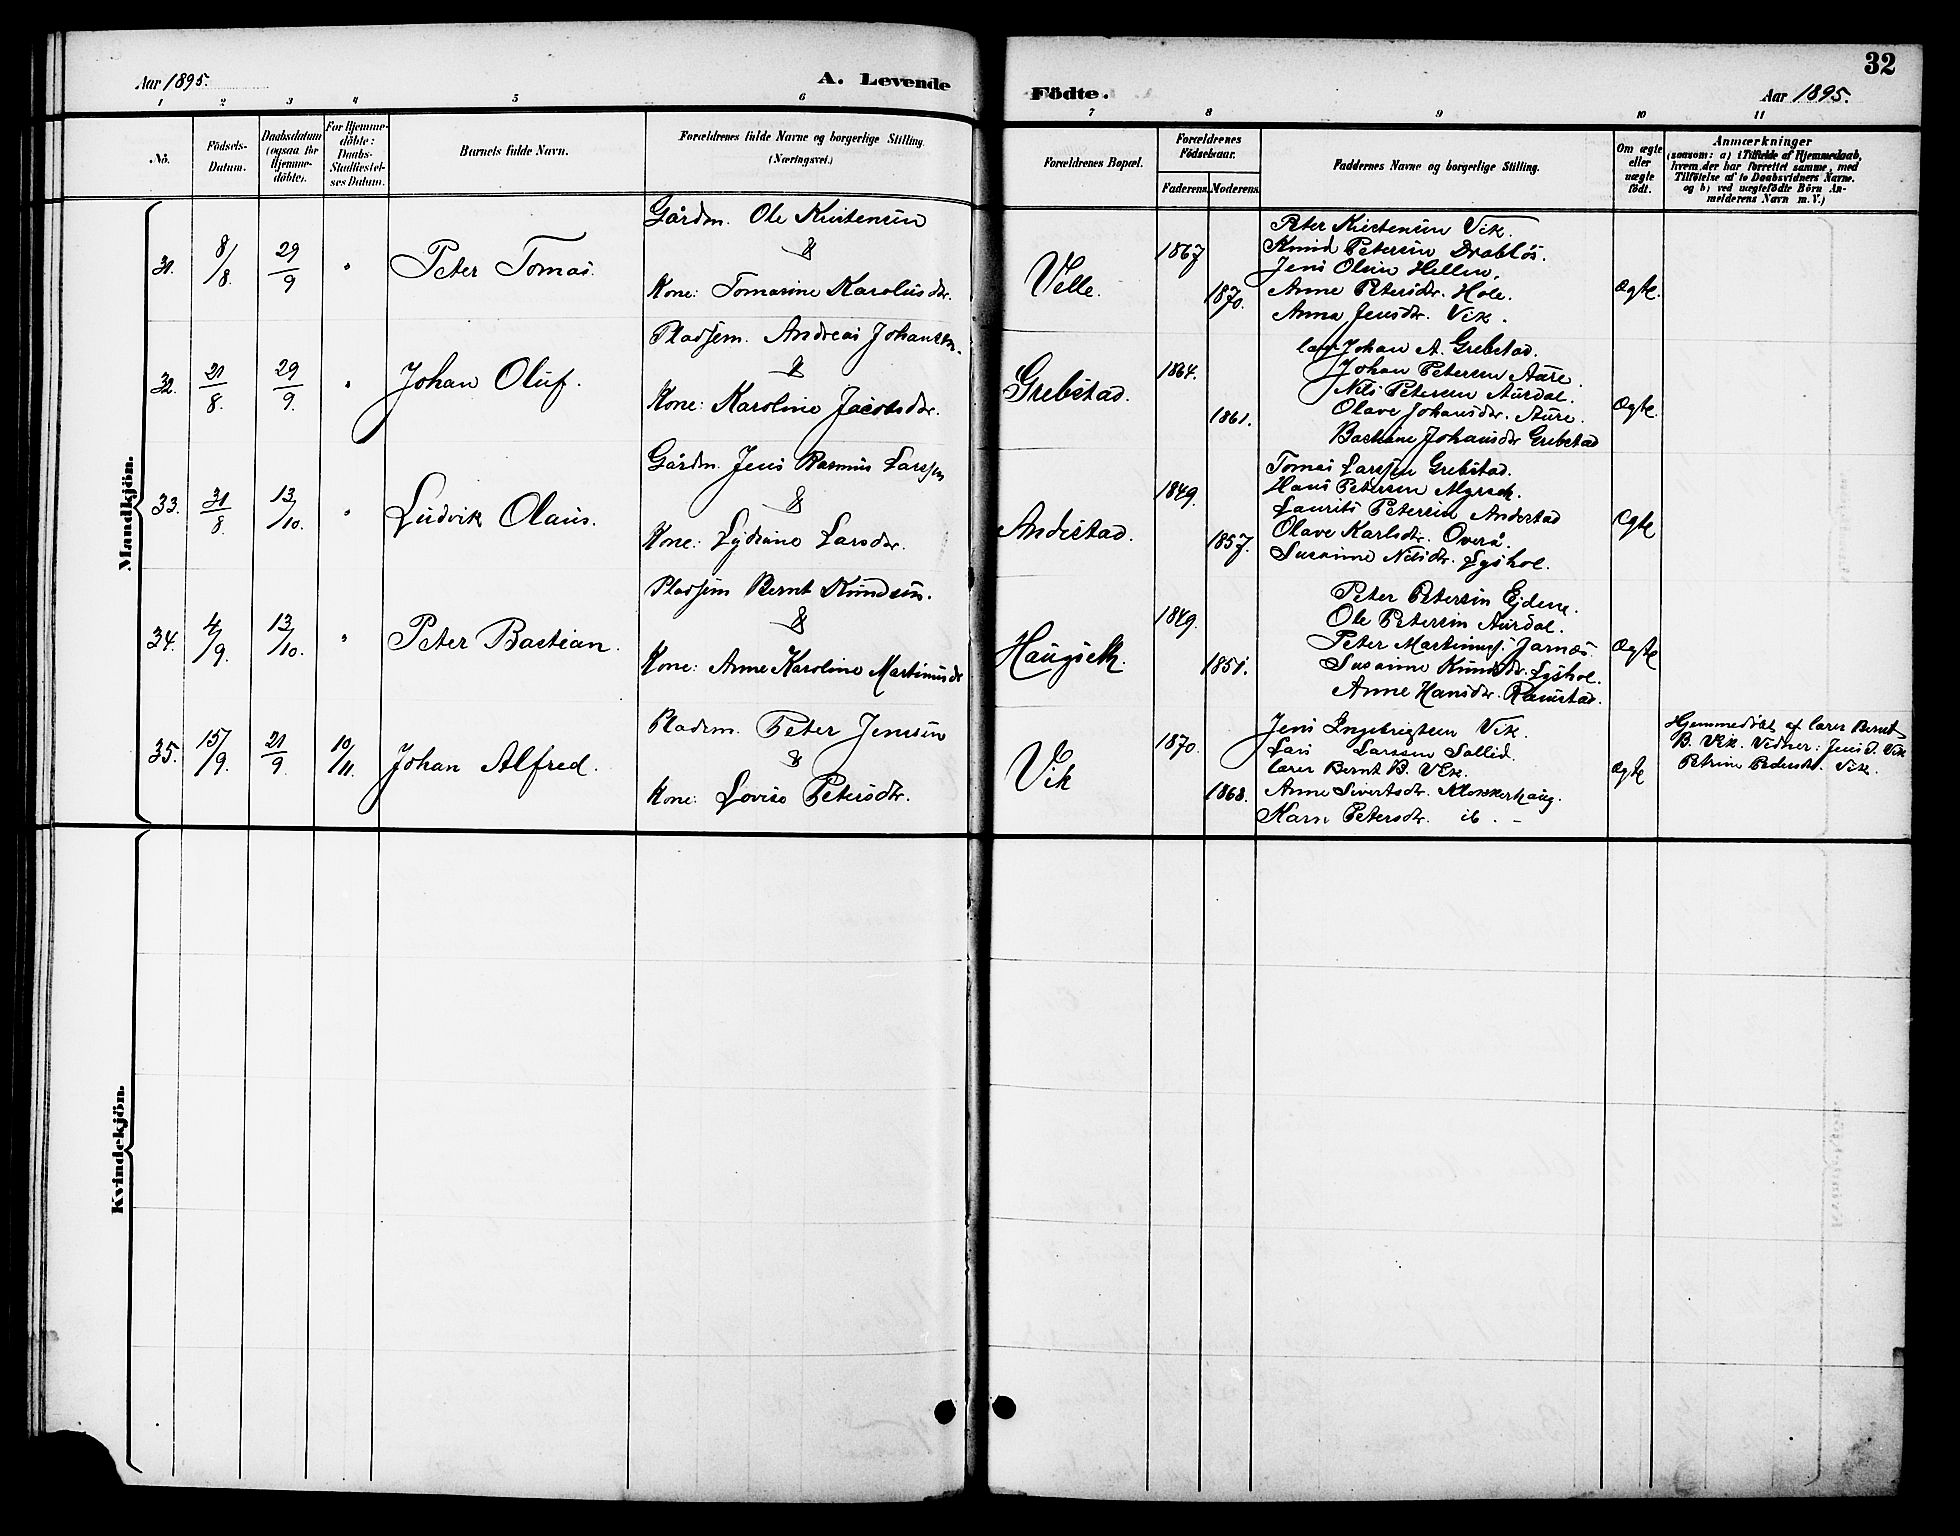 Aar 1895.
A. Levende
Födte.
32
Aar 1895.
1 2 3 4 5 6 7 8 9 10 11
No.
Födsels-
Datum.
Daabsdatum
(ogsaa for
Hjemme-
döbte).
For Hjemme-
döbte:
Daabs-
Stadfæstel-
ses Datum.
Barnets fulde Navn.
Forældrenes fulde Navne og borgerlige Stilling.
(Næringsvei.)
Forældrenes Bopæl.
Forældrenes
Födselsaar.
Faderens. Moderens.
Faddernes Navne og borgerlige Stilling.
Om ægte
eller
uægte
födt.
Anmærkninger
(saasom: a) i Tilfælde af Hjemmedaab,
hvem der har forrettet samme, med
Tilföielse af to Daabsvidners Navne.
og b) ved uægtefödte Börn An-
melderens Navn m. V.)
Mandkjön.
31.
8/8.
29/9
"
Peter Tomas.
Gårdm. Ole Kristensen
&
Kone: Tomasine Karolusdr.
Velle.
1867
1870.
Peter Kristensen Vik.
Knud Petersen Drabløs.
Jens Olsen Hellen.
Anne Petersdr. Hole.
Anna Jensdr. Vik.
Ægte.
32.
21/8.
29/9.
"
Johan Oluf.
Pladsem. Andreas Johansen.
&
Kone: Karoline Jacobsdr.
Grebstad.
1864.
1861.
Johan A. Grebstad.
Johan Petersen Aure.
Nils Petersen Aurdal.
Olave Johansdr. Aure.
Bastiane Johansdr Grebstad
Ægte.
33.
31/8.
13/10.
"
Ludvik Olaus.
Gårdm. Jens Rasmus Larssen
&
Kone: Lydiane Larsdr.
Andestad.
1849.
1857.
Tomas Larssen Grebstad.
Hans Petersen Myrset.
Laurits Petersen Andestad
Olave Karlsdr. Overå.
Susanne Nilsdr. Lyshol.
Ægte
34.
4/9.
13/10.
"
Peter Bastian.
Pladsem Bernt Knudsen.
&
Kone: Anne Karoline Martinusdr
Haugseth.
1849.
1851.
Peter Petersen Ejdem.
Ole Petersen Aurdal.
Peter Martinus. Jarnæs.
Susanne Knudsdr. Lyshol.
Anne Hansdr. Ramstad.
Ægte
35.
15/9.
21/9
10/11.
Johan Alfred.
Pladsm. Peter Jensen
&
Kone: Lovise Petersdr.
Vik
1870.
1868.
Jens Ingebrigtsen Vik.
Lars Larssen Sallid.
lærer Bernt B. Vik.
Anne Sivertsdr. Klokkerhaug.
Karn Petersdr. ib. -
Ægte
Hjemmedöbt af lærer Bernt
B. Vik. Vidner: Jens I. Vik
Petrine Pedersdr. Vik.
Kvindekjön.